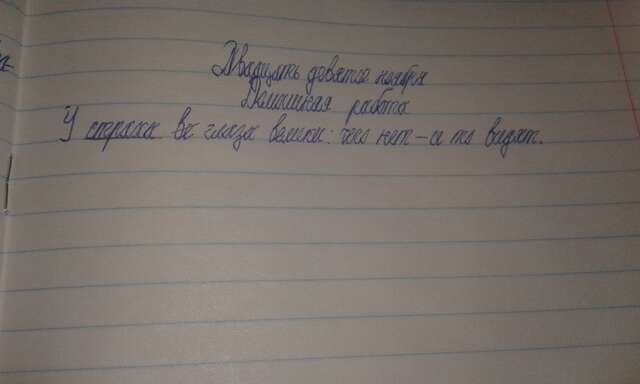 Двадцать девятое ноября
Домашняя работа
У страха вс глаза велики: чего нет – а то видят.